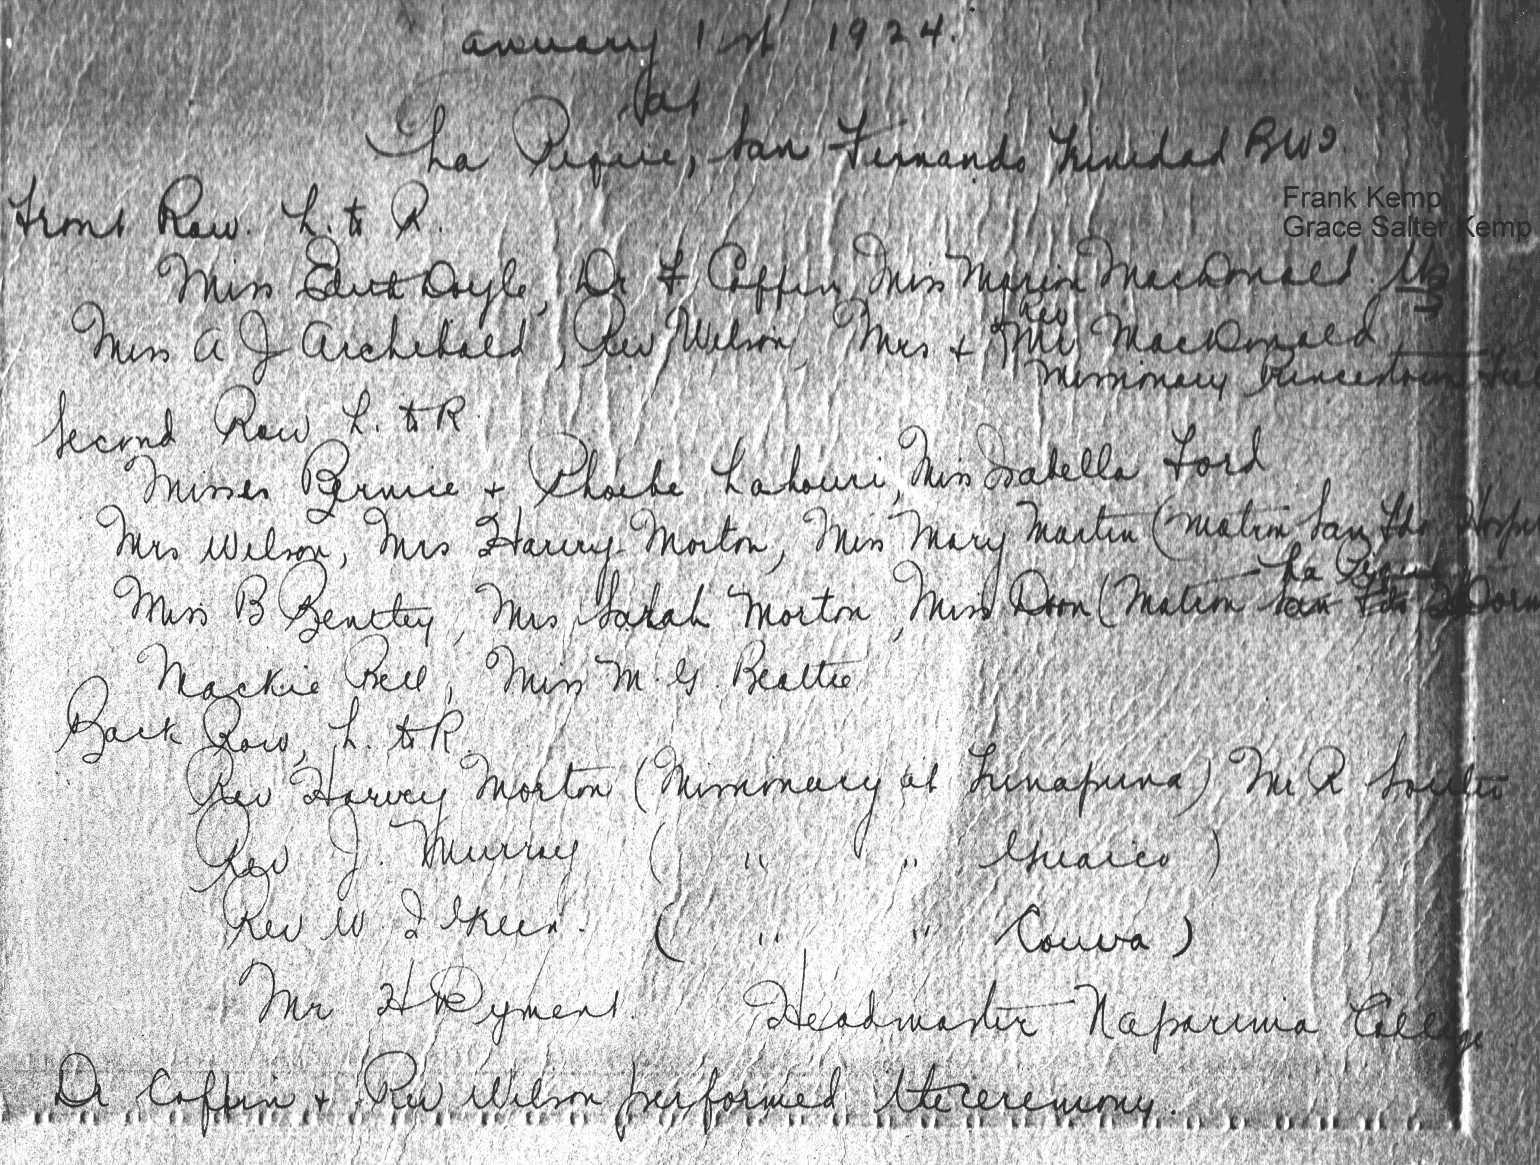 anuary 1st 1924.
at
La Pique, San Fernando Trinidad BWI
Frank Kemp
Grace Salter Kemp
Front Row. L. to R.
Miss Edith Doyle, Dr F Coffin, Miss Marion MacDonald
Miss A J Archibald, Rev Wilson, Mrs & Rev Mr MacDonald
Missionary Princestown
Second Row L. to R
Misses Bernice & Phoebe Lahouri, Miss Isabella Ford
Mrs Wilson, Mrs Harvey Morton, Miss Mary Martin (Matron San Fdo Hosp
La Pique
Miss B Bentley, Mrs Sarah Morton, Miss Doon (Matron San Fdo Dorm
Mackie Bell, Miss M. G. Beattie
Back Row, L. to R.
Rev Harvey Morton (Missionary at Tunapuna) Mr R
Rev J. Murray ( " " Guaico)
Rev W. I Green. ( " " Couva)
Mr H Ryment. Headmaster Naparima College
Dr Coffin & Rev Wilson performed the ceremony.